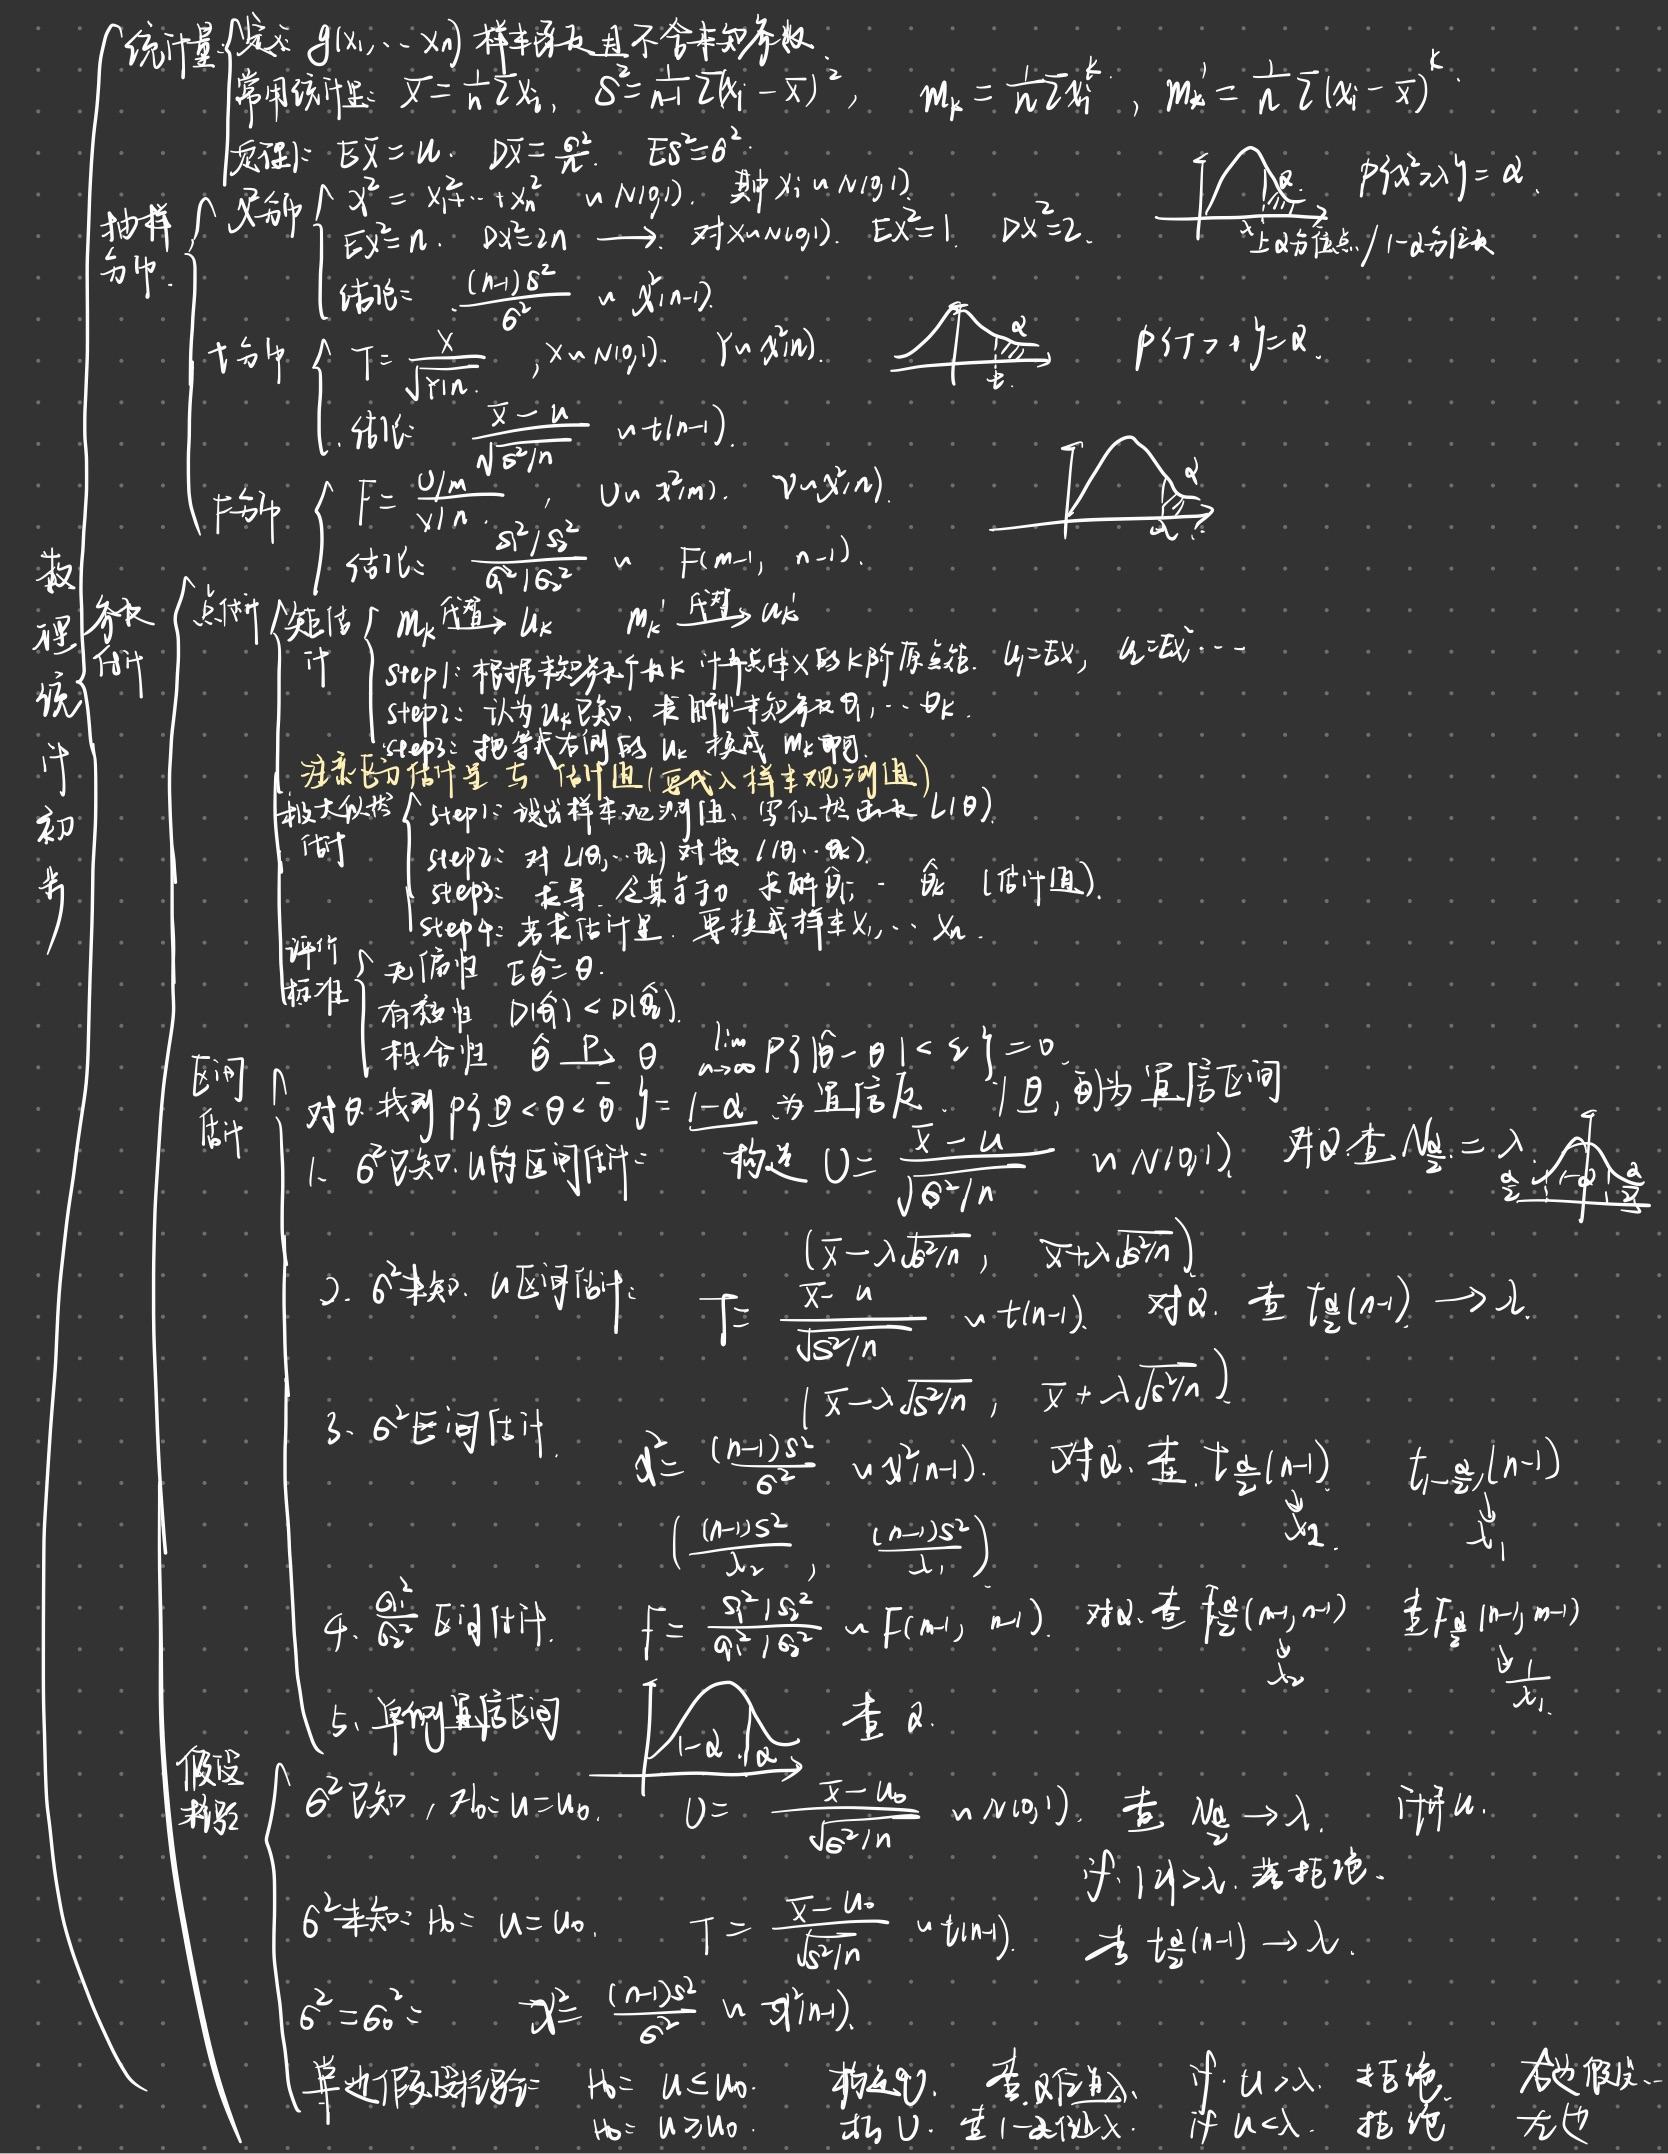 数理统计初步
统计量: 定义: g(x₁,…xn) 样本函数且不含未知参数.
常用统计量: X̄ = 1/n Σxᵢ, S² = 1/(n-1) Σ(xᵢ - x̄)², mₖ = 1/n Σxᵢᵏ, mₖ' = 1/n Σ(xᵢ - x̄)ᵏ.
定理1: EX̄ = u. DX̄ = σ²/n. ES² = σ².
抽样分布.
χ²分布 χ² = x₁²+…+xn² ~ N(0,1). 其中 xᵢ ~ N(0,1)
P{χ²>λ} = α.
Eχ² = n. Dχ² = 2n → 对X~N(0,1). EX² = 1. DX² = 2.
上α分位点 / 1-α分位数
结论: (n-1)S²/σ² ~ χ²(n-1).
t分布 T = X/√(Y/n), X~N(0,1). Y~χ²(n).
α t
P{T>t} = α.
结论: (x̄ - u)/√(S²/n) ~ t(n-1).
F分布 F = (U/m)/(V/n), U~χ²(m). V~χ²(n).
α
结论: (S₁²/S₂²)/(σ₁²/σ₂²) ~ F(m-1, n-1).
参数估计
点估计
矩估计 mₖ 代替→ uₖ mₖ' 代替→ uₖ'
step1: 根据未知参数个数K 计算总体X的K阶原点矩. u₁=EX, u₂=EX²…
step2: 认为uₖ已知, 求解出未知参数θ₁,…θₖ.
step3: 把等式右侧的 uₖ 换成 mₖ 即可.
注意区分估计量与估计值(要代入样本观测值)
极大似然估计 step1: 设出样本观测值、写似然函数 L(θ).
step2: 对 L(θ₁…θₖ) 对数 l(θ₁…θₖ).
step3: 求导. 令其等于0 求解θ̂₁,… θ̂ₖ (估计值).
step4: 若求估计量. 要换成样本X₁,… Xn.
评价标准
无偏性 Eθ̂ = θ.
有效性 D(θ̂₁) < D(θ̂₂).
相合性 θ̂ P→ θ lim n→∞ P{|θ̂ - θ| < ε} = 0
区间估计
对θ. 找到 P{θ̲ < θ < θ̄} = 1-α 为置信度. (θ̲, θ̄)为置信区间
1. σ²已知. u的区间估计: 构造 U = (x̄ - u)/√(σ²/n) ~ N(0,1) 对α 查 N_{α/2} = λ
α/2 1-α α/2
(x̄ - λ√(σ²/n), x̄ + λ√(σ²/n))
2. σ²未知. u区间估计: T = (x̄ - u)/√(S²/n) ~ t(n-1). 对α. 查 t_{α/2}(n-1) → λ.
(x̄ - λ√(S²/n), x̄ + λ√(S²/n))
3、σ²区间估计. χ² = (n-1)S²/σ² ~ χ²(n-1). 对α、查 t_{α/2}(n-1) t_{1-α/2}(n-1)
↓ λ₂. ↓ λ₁
((n-1)S²/λ₂, (n-1)S²/λ₁)
4、σ₁²/σ₂² 区间估计. F = (S₁²/S₂²)/(σ₁²/σ₂²) ~ F(m-1, n-1). 对α、查 F_{α/2}(m-1, n-1) 查 F_{α/2}(n-1, m-1)
↓ λ₂ ↓ 1/λ₁.
5、单侧置信区间 1-α α 查 α.
假设检验
σ²已知, H₀: u = u₀. U = (x̄ - u₀)/√(σ²/n) ~ N(0,1). 查 N_{α/2} → λ. 计算 u.
if |u| > λ. 拒绝.
σ²未知: H₀: u = u₀. T = (x̄ - u₀)/√(S²/n) ~ t(n-1). 查 t_{α/2}(n-1) → λ.
σ² = σ₀²: χ² = (n-1)S²/σ² ~ χ²(n-1).
单边假设检验: H₀: u ≤ u₀. 构造U. 查α位 λ. if u > λ. 拒绝. 右边假设…
H₀: u ≥ u₀. 构 U. 查 1-α位 λ. if u < λ. 拒绝 左边